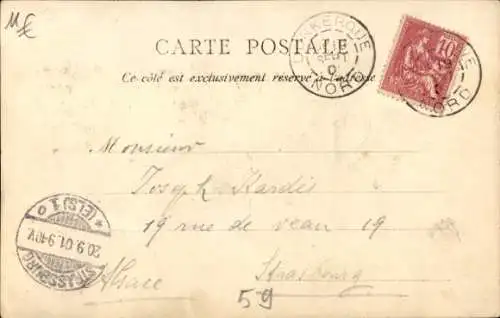 CARTE POSTALE
Ce côté est exclusivement réservé à l'adresse
DUNKERQUE
NORD
10
NORD
Monsieur
Joseph Kardès
19 rue de veau 19
Strasbourg
Alsace
STRASSBURG
(ELS) 1
20.9.01. 9-10V.
59